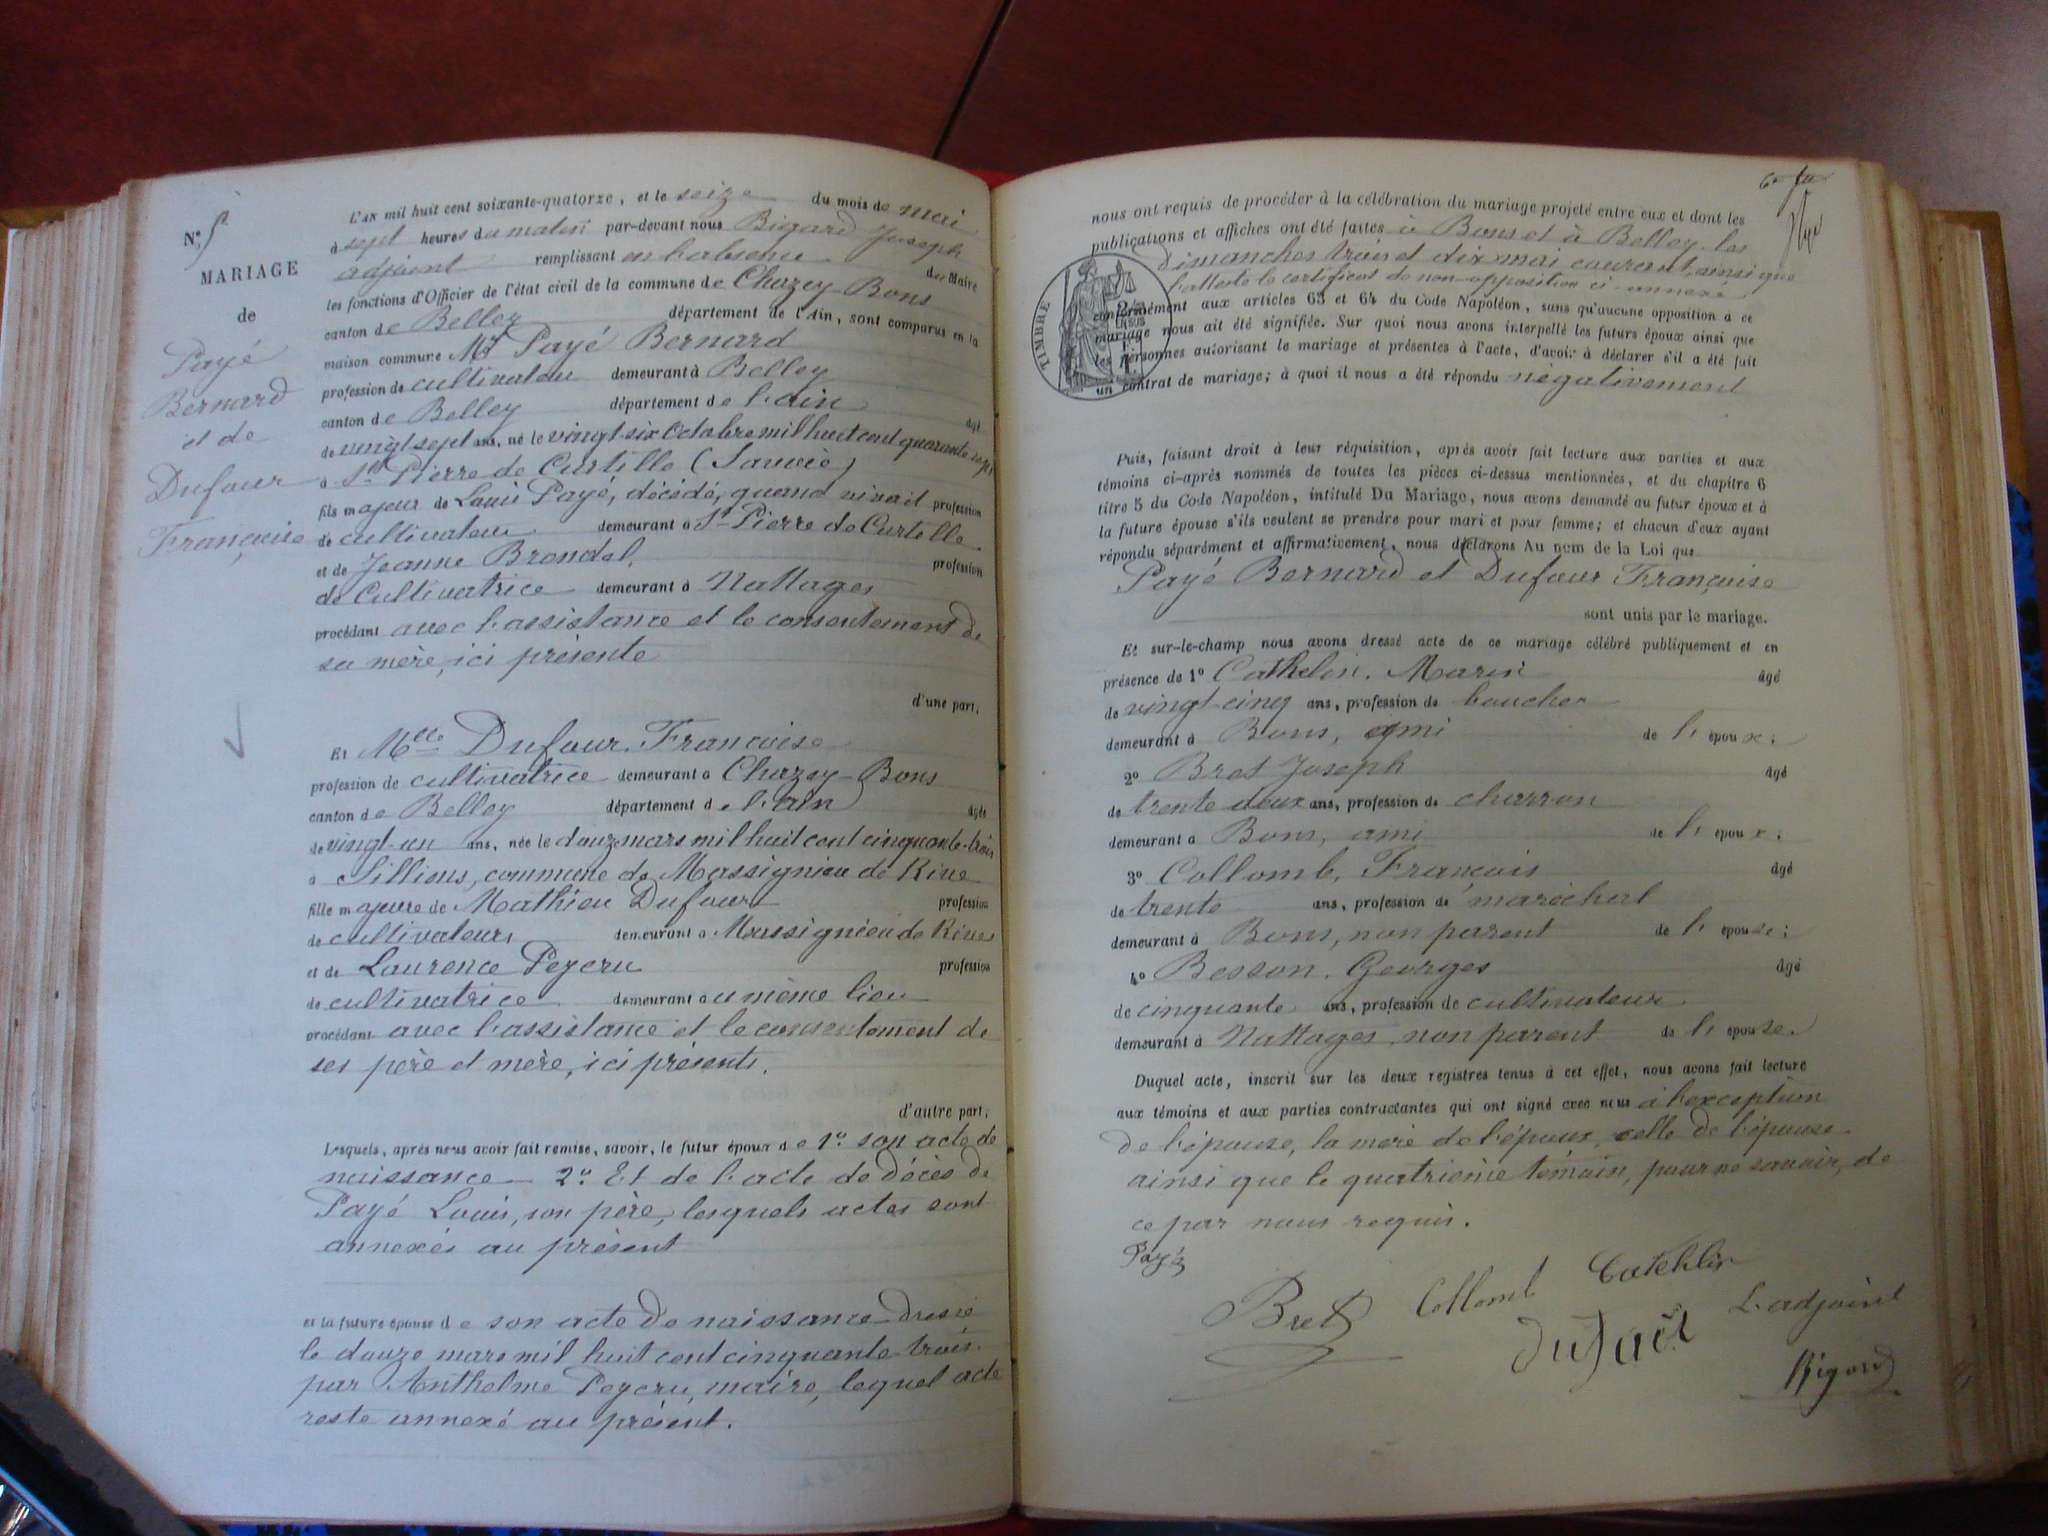 N° 5
MARIAGE
de
Payé
Bernard
et de
Dufour
Françoise
L'AN mil huit cent soixante-quatorze, et le seize du mois de mai
à sept heures du matin par-devant nous Bigard Joseph
adjoint remplissant en l'absence du Maire
les fonctions d'Officier de l'état civil de la commune de Chazey-Bons
canton de Belley département de l'Ain, sont comparus en la
maison commune Mr Payé Bernard
profession de cultivateur demeurant à Belley
canton de Belley département de l'ain âgé
de vingt sept ans, né le vingt-six Octobre mil huit cent quarante sept
à St Pierre de Curtille (Savoie)
fils majeur de Louis Payé, décédé, quand vivait profession
de cultivateur demeurant à St Pierre de Curtelle
et de Jeanne Brondel, profession
de Cultivatrice demeurant à Nattages
procédant avec l'assistance et le consentement de
sa mère, ici présente
d'une part,
Et Melle Dufour Françoise
profession de cultivatrice demeurant à Chazey-Bons
canton de Belley département de l'ain âgée
de vingt-un ans, née le douze mars mil huit cent cinquante-trois
à Sillieus, commune de Massignieu de Rive
fille majeure de Mathieu Dufour profession
de cultivateurs demeurant à Massignieu de Rives
et de Laurence Pezeru profession
de cultivatrice demeurant au même lieu
procédant avec l'assistance et le consentement de
ses père et mère, ici présents.
d'autre part,
Lesquels, après nous avoir fait remise, savoir, le futur époux de 1° son acte de
naissance - 2° Et de l'acte de décès de
Payé Louis, son père, lesquels actes sont
annexés au présent
et la future épouse de son acte de naissance dressé
le douze mars mil huit cent cinquante trois
par Anthelme Pezeru, maire, lequel acte
reste annexé au présent.
nous ont requis de procéder à la célébration du mariage projeté entre eux et dont les
publications et affiches ont été faites à Bons et à Belley les
dimanches trois et dix mai courant, ainsi que
l'atteste le certificat de non-opposition ci-annexé
TIMBRE
conformément aux articles 63 et 64 du Code Napoléon, sans qu'aucune opposition à ce
mariage nous ait été signifiée. Sur quoi nous avons interpellé les futurs époux ainsi que
les personnes autorisant le mariage et présentes à l'acte, d'avoir à déclarer s'il a été fait
un contrat de mariage; à quoi il nous a été répondu négativement
Puis, faisant droit à leur réquisition, après avoir fait lecture aux parties et aux
témoins ci-après nommés de toutes les pièces ci-dessus mentionnées, et du chapitre 6
titre 5 du Code Napoléon, intitulé Du Mariage, nous avons demandé au futur époux et à
la future épouse s'ils veulent se prendre pour mari et pour femme; et chacun d'eux ayant
répondu séparément et affirmativement, nous déclarons Au nom de la Loi que
Payé Bernard et Dufour Françoise
sont unis par le mariage.
Et sur-le-champ nous avons dressé acte de ce mariage célébré publiquement et en
présence de 1° Cathelin, Marin âgé
de vingt-cinq ans, profession de boucher
demeurant à Bons, ami de l' époux;
2° Bret Joseph âgé
de trente deux ans, profession de charron
demeurant à Bons, ami de l' époux;
3° Collomb, François âgé
de trente ans, profession de maréchal
demeurant à Bons, non parent de l' épouse;
4° Besson, Georges âgé
de cinquante ans, profession de cultivateur
demeurant à Nattages, non parent de l' épouse.
Duquel acte, inscrit sur les deux registres tenus à cet effet, nous avons fait lecture
aux témoins et aux parties contractantes qui ont signé avec nous à l'exception
de l'épouse, la mère de l'époux, celle de l'épouse
ainsi que le quatrième témoin, pour ne savoir, de
ce par nous requis.
Payé
Bret Collomb Catehlin
Dufour L'adjoint
Bigard